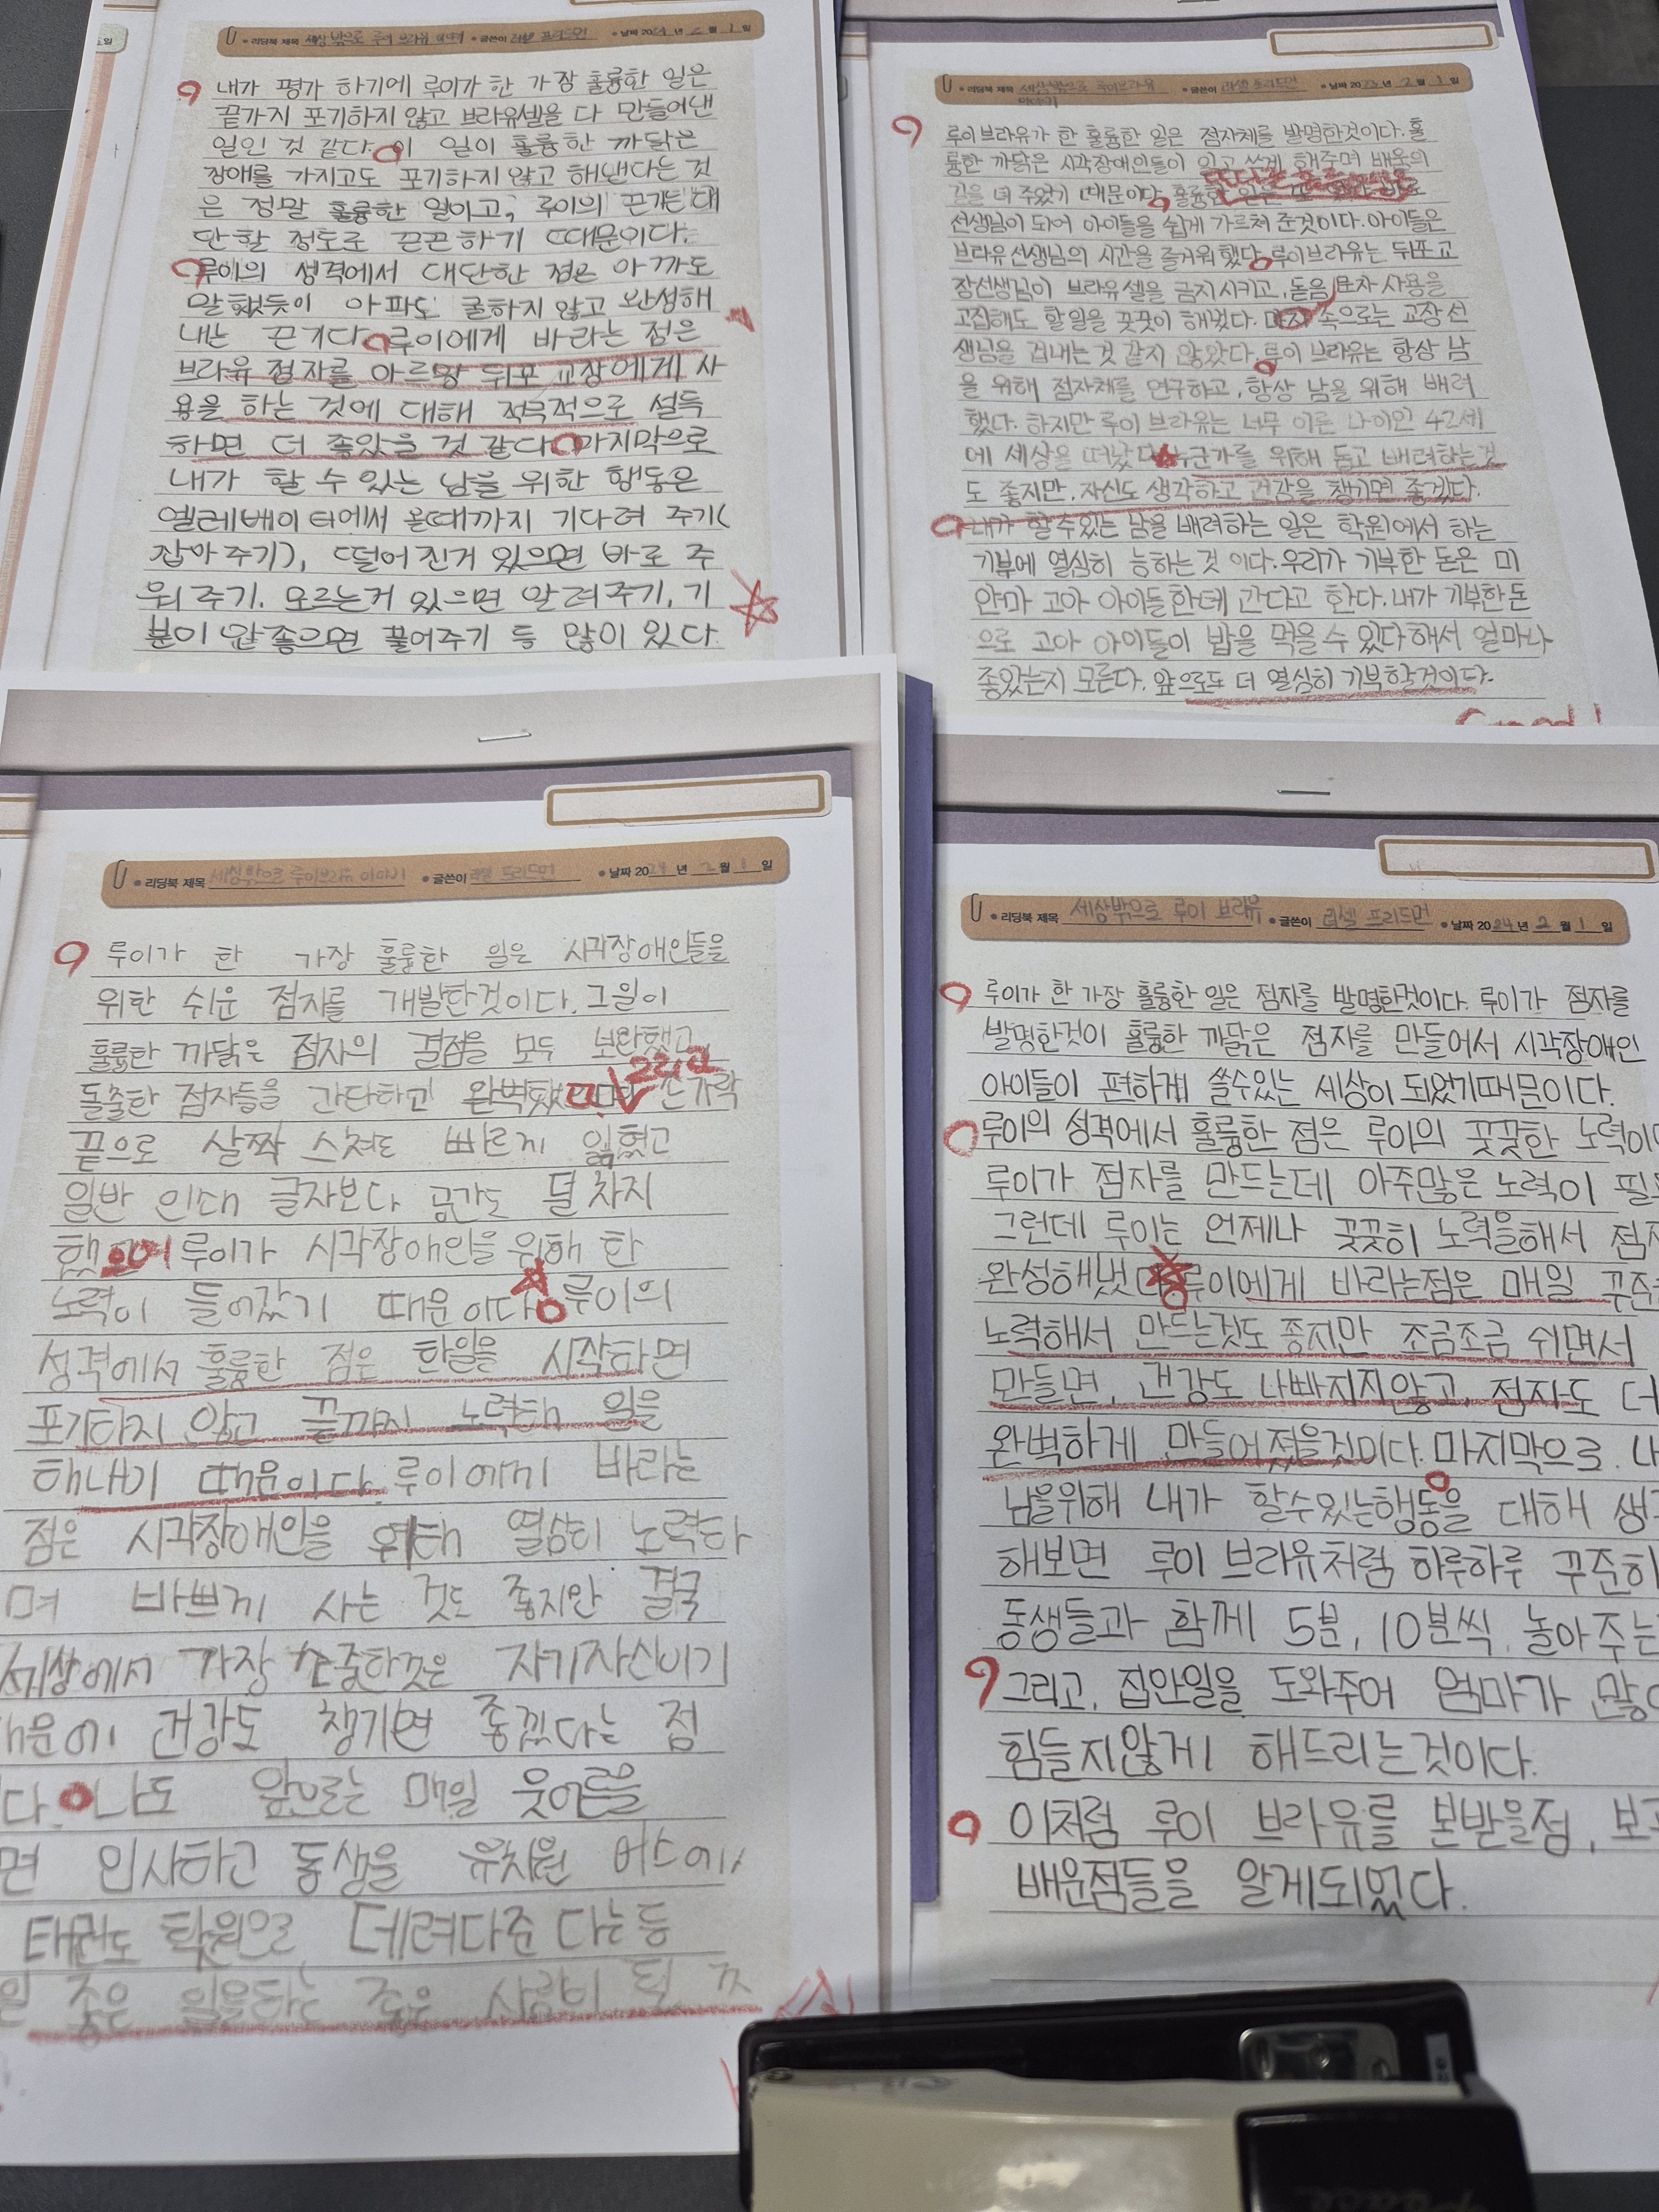 리딩북 제목 세상 밖으로 루이 브라유 이야기 글쓴이 러셀 프리드먼 날짜 2024년 2월 1일
내가 평가 하기에 루이가 한 가장 훌륭한 일은
끝가지 포기하지 않고 브라유셀을 다 만들어낸
일인 것 같다. 이 일이 훌륭한 까닭은
장애를 가지고도 포기하지 않고 해낸다는 것
은 정말 훌륭한 일이고, 루이의 끈기는 대
단할 정도로 끈끈하기 때문이다.
루이의 성격에서 대단한 점은 아까도
말했듯이 아파도 굴하지 않고 완성해
내는 끈기다. 루이에게 바라는 점은
브라유 점자를 아르망 뒤포 교장에게 사
용을 하는 것에 대해 적극적으로 설득
하면 더 좋았을 것 같다. 마지막으로
내가 할 수 있는 남을 위한 행동은
엘레베이터에서 올때까지 기다려 주기(
잡아주기), 떨어진거 있으면 바로 주
워주기. 모르는거 있으면 알려주기, 기
분이 안좋으면 풀어주기 등 많이 있다.
리딩북 제목 세상밖으로 루이브라유 이야기 글쓴이 러셀 프리드먼 날짜 2023년 2월 1일
루이브라유가 한 훌륭한 일은 점자체를 발명한것이다. 훌
륭한 까닭은 시각장애인들이 읽고 쓰게 해주며 배움의
길을 터 주었기 때문이다. 훌륭한 일은
선생님이 되어 아이들을 쉽게 가르쳐 준것이다. 아이들은
브라유선생님의 시간을 즐거워했다. 루이브라유는 뒤포교
장선생님이 브라유셀을 금지시키고, 돋음문자 사용을
고집해도 할일을 꿋꿋이 해냈다. 속으로는 교장선
생님을 겁내는것 같지 않았다. 루이 브라유는 항상 남
을 위해 점자체를 연구하고, 항상 남을 위해 배려
했다. 하지만 루이 브라유는 너무 이른 나이인 42세
에 세상을 떠났다. 누군가를 위해 돕고 배려하는것
도 좋지만, 자신도 생각하고 건강을 챙기면 좋겠다.
내가 할수있는 남을 배려하는 일은 학원에서 하는
기부에 열심히 능하는것 이다. 우리가 기부한 돈은 미
얀마 고아 아이들한테 간다고 한다. 내가 기부한돈
으로 고아 아이들이 밥을 먹을수 있다해서 얼마나
좋았는지 모른다. 앞으로도 더 열심히 기부할것이다.
Good!
리딩북 제목 세상밖으로 루이브라유 이야기 글쓴이 러셀 프리드먼 날짜 2024년 2월 1일
루이가 한 가장 훌륭한 일은 시각장애인들을
위한 쉬운 점자를 개발한것이다. 그일이
훌륭한 까닭은 점자의 결점을 모두 보완했고
돌출한 점자들을 간단하고 완벽했 그리고 손가락
끝으로 살짝 스쳐도 빠르게 읽혔고
일반 인대 글자보다 공간도 덜 차지
했으며 루이가 시각장애인을 위해 한
노력이 들어갔기 때문이다. 루이의
성격에서 훌륭한 점은 한일을 시작하면
포기하지 않고 끝까지 노력해 일을
해내기 때문이다. 루이에게 바라는
점은 시각장애인을 위해 열심히 노력하
며 바쁘게 사는 것도 좋지만 결국
세상에서 가장 소중한것은 자기자신이기
때문에 건강도 챙기면 좋겠다는 점
다. 나도 앞으로는 매일 웃어른을
면 인사하고 동생을 유치원 버스에,
태권도 학원으로 데려다준 다는등
좋은 일을하는 좋은 사람이 될
리딩북 제목 세상밖으로 루이 브라유 글쓴이 러셀 프리드먼 날짜 2024년 2월 1일
루이가 한 가장 훌륭한 일은 점자를 발명한것이다. 루이가 점자를
발명한것이 훌륭한 까닭은 점자를 만들어서 시각장애인
아이들이 편하게 쓸수있는 세상이 되었기때문이다.
루이의 성격에서 훌륭한 점은 루이의 꿋꿋한 노력이
루이가 점자를 만드는데 아주많은 노력이 필
그런데 루이는 언제나 꿋꿋히 노력을해서 점자
완성해냈다. 루이에게 바라는점은 매일 꾸준
노력해서 만드는것도 좋지만 조금조금 쉬면서
만들면, 건강도 나빠지지않고, 점자도 더
완벽하게 만들어졌을것이다. 마지막으로 내
남을위해 내가 할수있는행동을 대해 생
해보면 루이 브라유처럼 하루하루 꾸준히
동생들과 함께 5분, 10분씩. 놀아주는
그리고, 집안일을 도와주어 엄마가 많이
힘들지않게 해드리는것이다.
이처럼 루이 브라유를 본받을점, 보고
배운점들을 알게되었다.